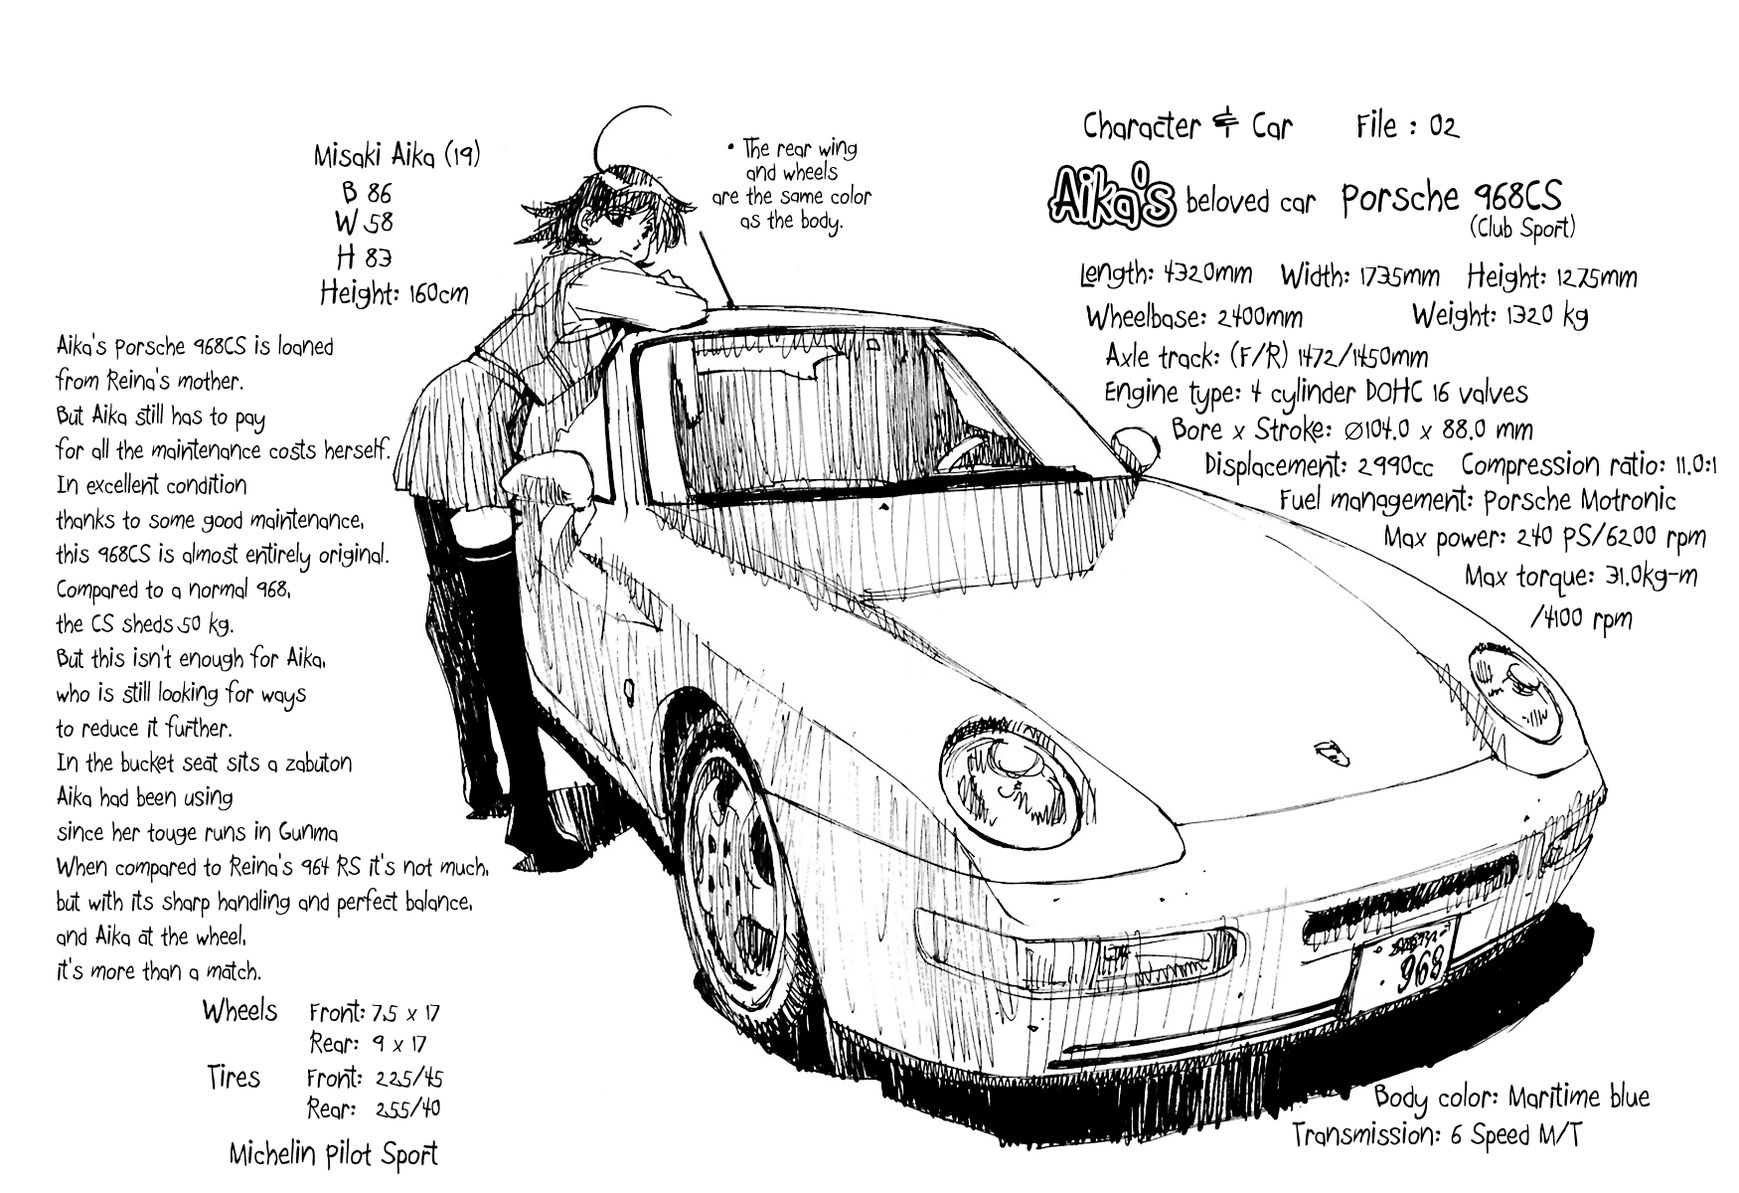 Character & Car File : 02
Aika's beloved car Porsche 968CS
(Club Sport)
Length: 4320mm Width: 1735mm Height: 1275mm
Wheelbase: 2400mm Weight: 1320 kg
Axle track: (F/R) 1472/1450mm
Engine type: 4 cylinder DOHC 16 valves
Bore x Stroke: ∅104.0 x 88.0 mm
Displacement: 2990cc Compression ratio: 11.0:1
Fuel management: Porsche Motronic
Max power: 240 PS/6200 rpm
Max torque: 31.0kg-m
/4100 rpm
• The rear wing
and wheels
are the same color
as the body.
Misaki Aika (19)
B 86
W 58
H 83
Height: 160cm
Aika's Porsche 968CS is loaned
from Reina's mother.
But Aika still has to pay
for all the maintenance costs herself.
In excellent condition
thanks to some good maintenance,
this 968CS is almost entirely original.
Compared to a normal 968,
the CS sheds 50 kg.
But this isn't enough for Aika,
who is still looking for ways
to reduce it further.
In the bucket seat sits a zabuton
Aika had been using
since her touge runs in Gunma
When compared to Reina's 964 RS it's not much,
but with its sharp handling and perfect balance,
and Aika at the wheel,
it's more than a match.
Wheels Front: 7.5 x 17
Rear: 9 x 17
Tires Front: 225/45
Rear: 255/40
Michelin Pilot Sport
968
Body color: Maritime blue
Transmission: 6 Speed M/T